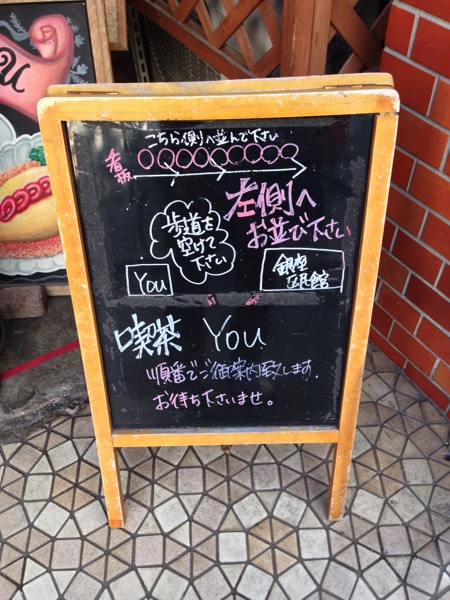 こちら側へ並んで下さい
看板
左側へ
お並び下さい
歩道を
空けて
下さい
You
銀座
区民館
喫茶 You
順番でご御案内致します.
お待ち下さいませ。